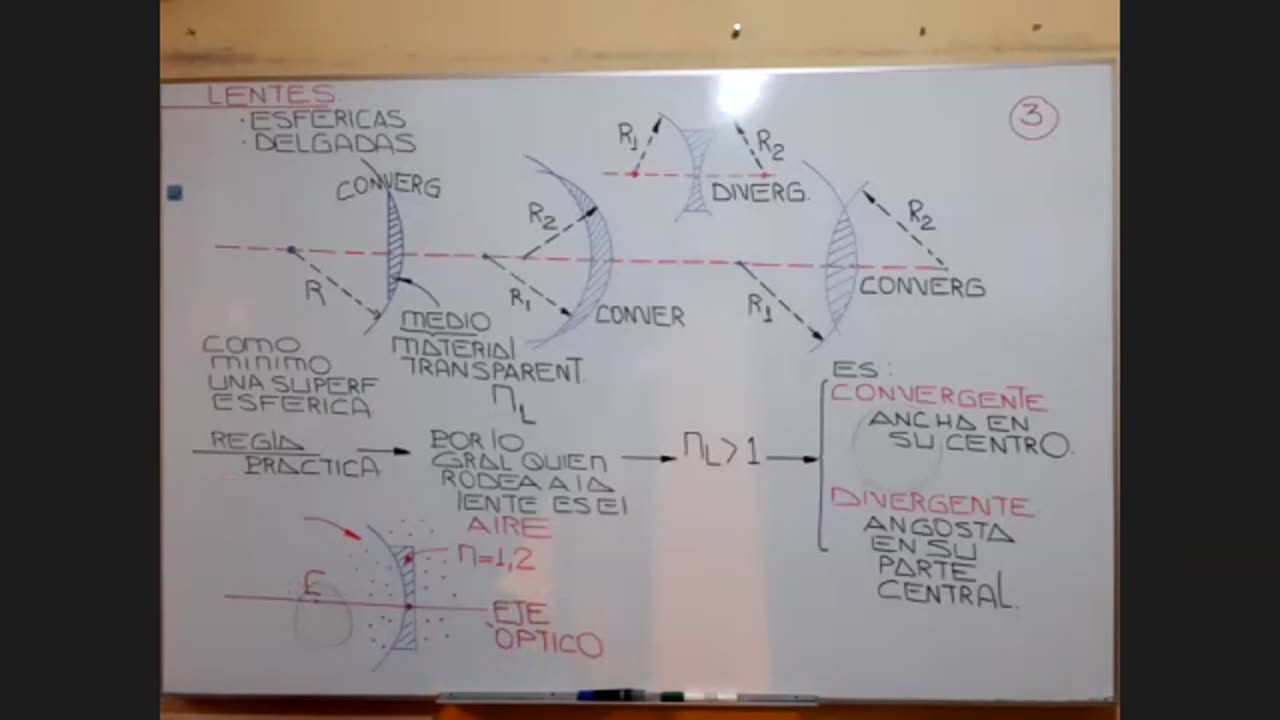 LENTES.
· ESFERICAS
· DELGADAS
3
CONVERG
R
MEDIO
MATERIAL
TRANSPARENT.
nL
R2
R1
CONVER
R1
R2
DIVERG.
R1
R2
CONVERG
COMO
MINIMO
UNA SUPERF
ESFERICA
REGLA
PRACTICA
POR LO
GRAL QUIEN
RODEA A LA
LENTE ES EL
AIRE
nL > 1
ES:
CONVERGENTE
ANCHA EN
SU CENTRO.
DIVERGENTE
ANGOSTA
EN SU
PARTE
CENTRAL.
n=1,2
EJE
OPTICO